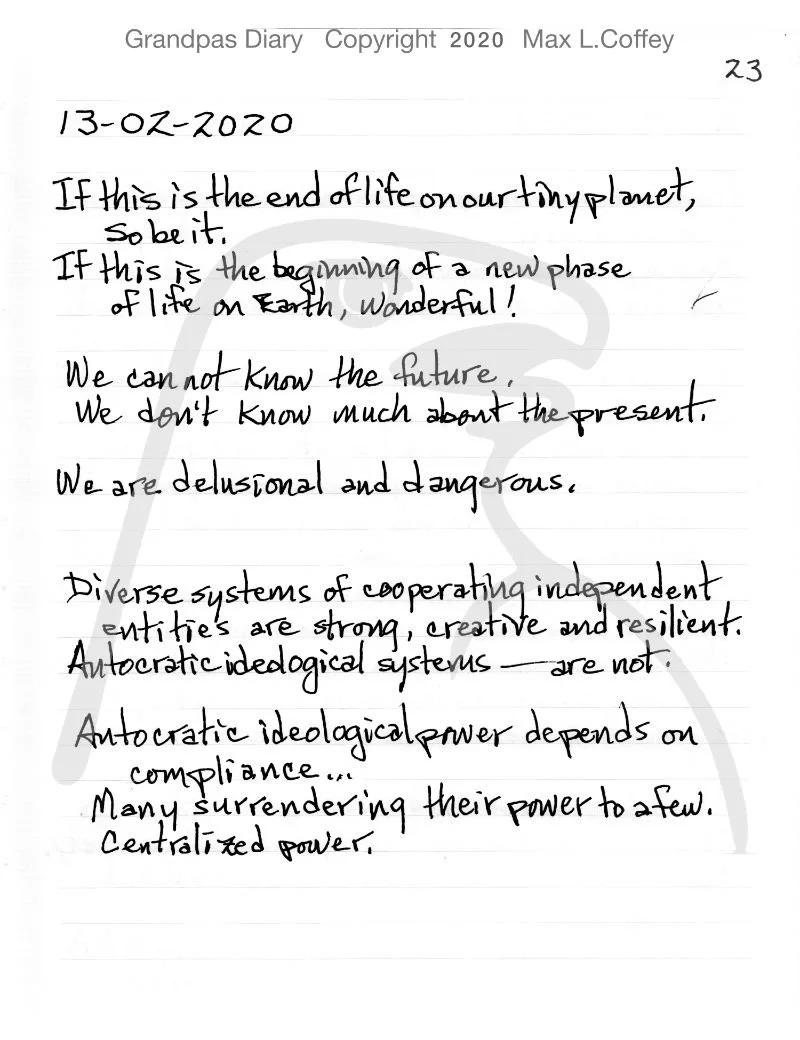 Grandpas Diary Copyright 2020 Max L.Coffey
23
13-02-2020
If this is the end of life on our tiny planet,
so be it.
If this is the beginning of a new phase
of life on Earth, wonderful!
We can not know the future.
We don't know much about the present.
We are delusional and dangerous.
Diverse systems of cooperating independent
entities are strong, creative and resilient.
Autocratic ideological systems — are not.
Autocratic ideological power depends on
compliance...
Many surrendering their power to a few.
Centralized power.